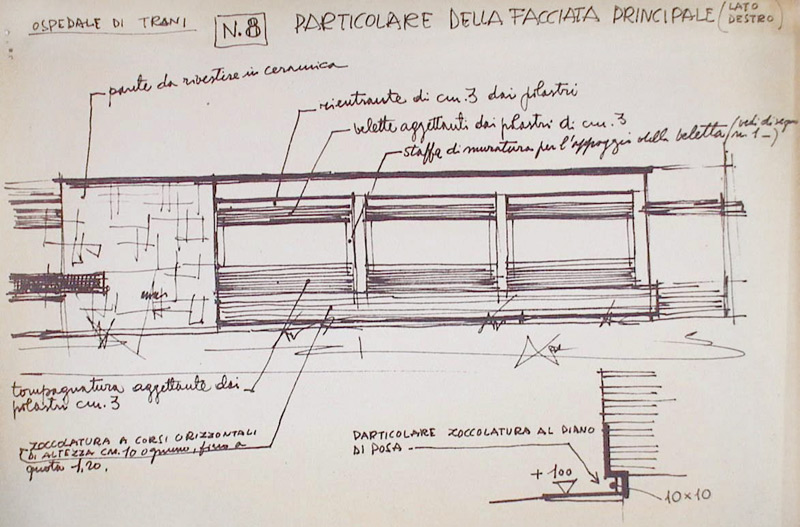 OSPEDALE DI TRANI
N. 8
PARTICOLARE DELLA FACCIATA PRINCIPALE (LATO DESTRO)
parete da rivestire in ceramica
rientrante di cm. 3 dai pilastri
velette aggettanti dai pilastri di cm. 3
staffa di muratura per l'appoggio della veletta (vedi disegno
n. 1 —)
tompagnatura aggettante dai
pilastri cm. 3
ZOCCOLATURA A CORSI ORIZZONTALI
DI ALTEZZA CM. 10 ognuno, fino a
quota 1,20.
PARTICOLARE ZOCCOLATURA AL PIANO
DI POSA
+ 100
10×10